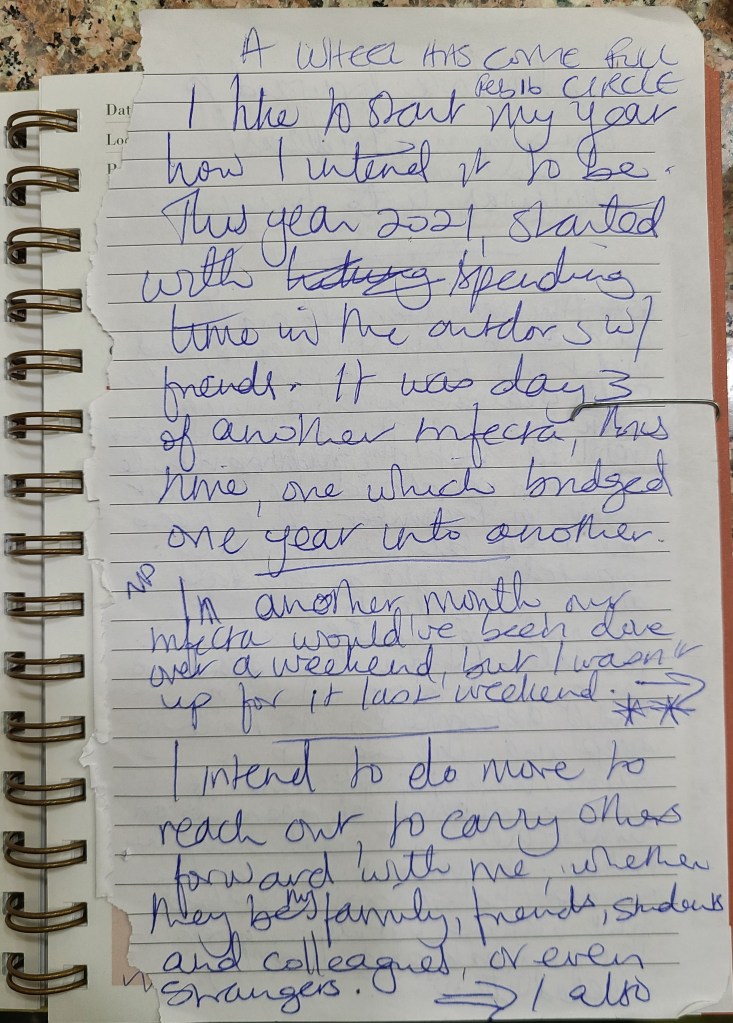 A WHEEL HAS COME FULL
Feb 16 CIRCLE
Dat
Loc
I like to start my year
how I intend it to be.
This year 2021, started
with spending
time in the outdors w/
friends. It was day 3
of another trifecta, this
time, one which bridged
one year into another.
NP
In another month, our
trifecta would've been done
over a weekend, but I wasn't
up for it last weekend. →
**
I intend to do more to
reach out, to carry others
forward with me, whether
they be my family, friends, students
and colleagues, or even
strangers. ⇒ I also